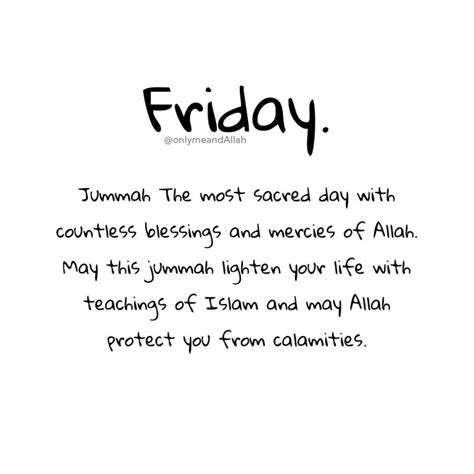 Friday.
@onlymeandAllah
Jummah The most sacred day with
countless blessings and mercies of Allah.
May this jummah lighten your life with
teachings of Islam and may Allah
protect you from calamities.